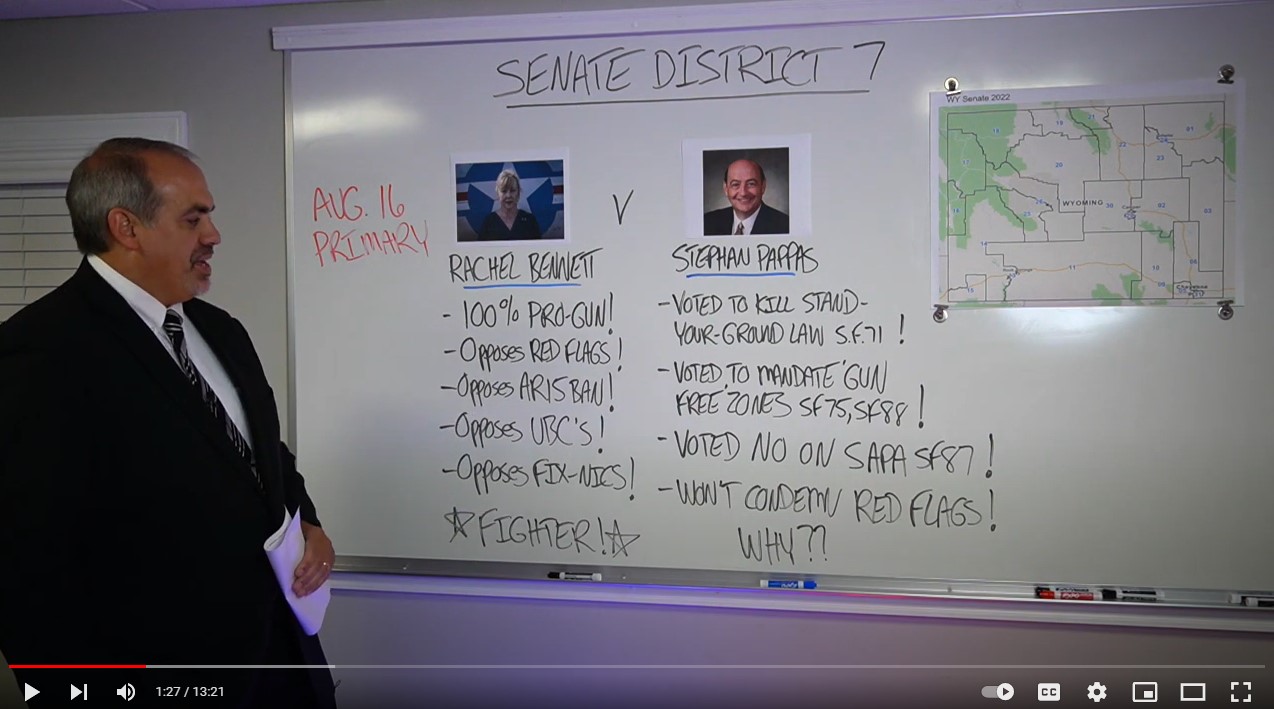 SENATE DISTRICT 7
WY Senate 2022
AUG. 16
PRIMARY
V
RACHEL BENNETT
- 100% PRO-GUN!
- OPPOSES RED FLAGS!
- OPPOSES AR15 BAN!
- OPPOSES UBC'S!
- OPPOSES FIX-NICS!
FIGHTER!
STEPHAN PAPPAS
- VOTED TO KILL STAND-
YOUR-GROUND LAW S.F.71!
- VOTED TO MANDATE "GUN
FREE" ZONES SF75, SF88!
- VOTED NO ON SAPA SF87!
- WON'T CONDEMN RED FLAGS!
WHY??
WYOMING
20
22
23
30
11
1:27 / 13:21
CC